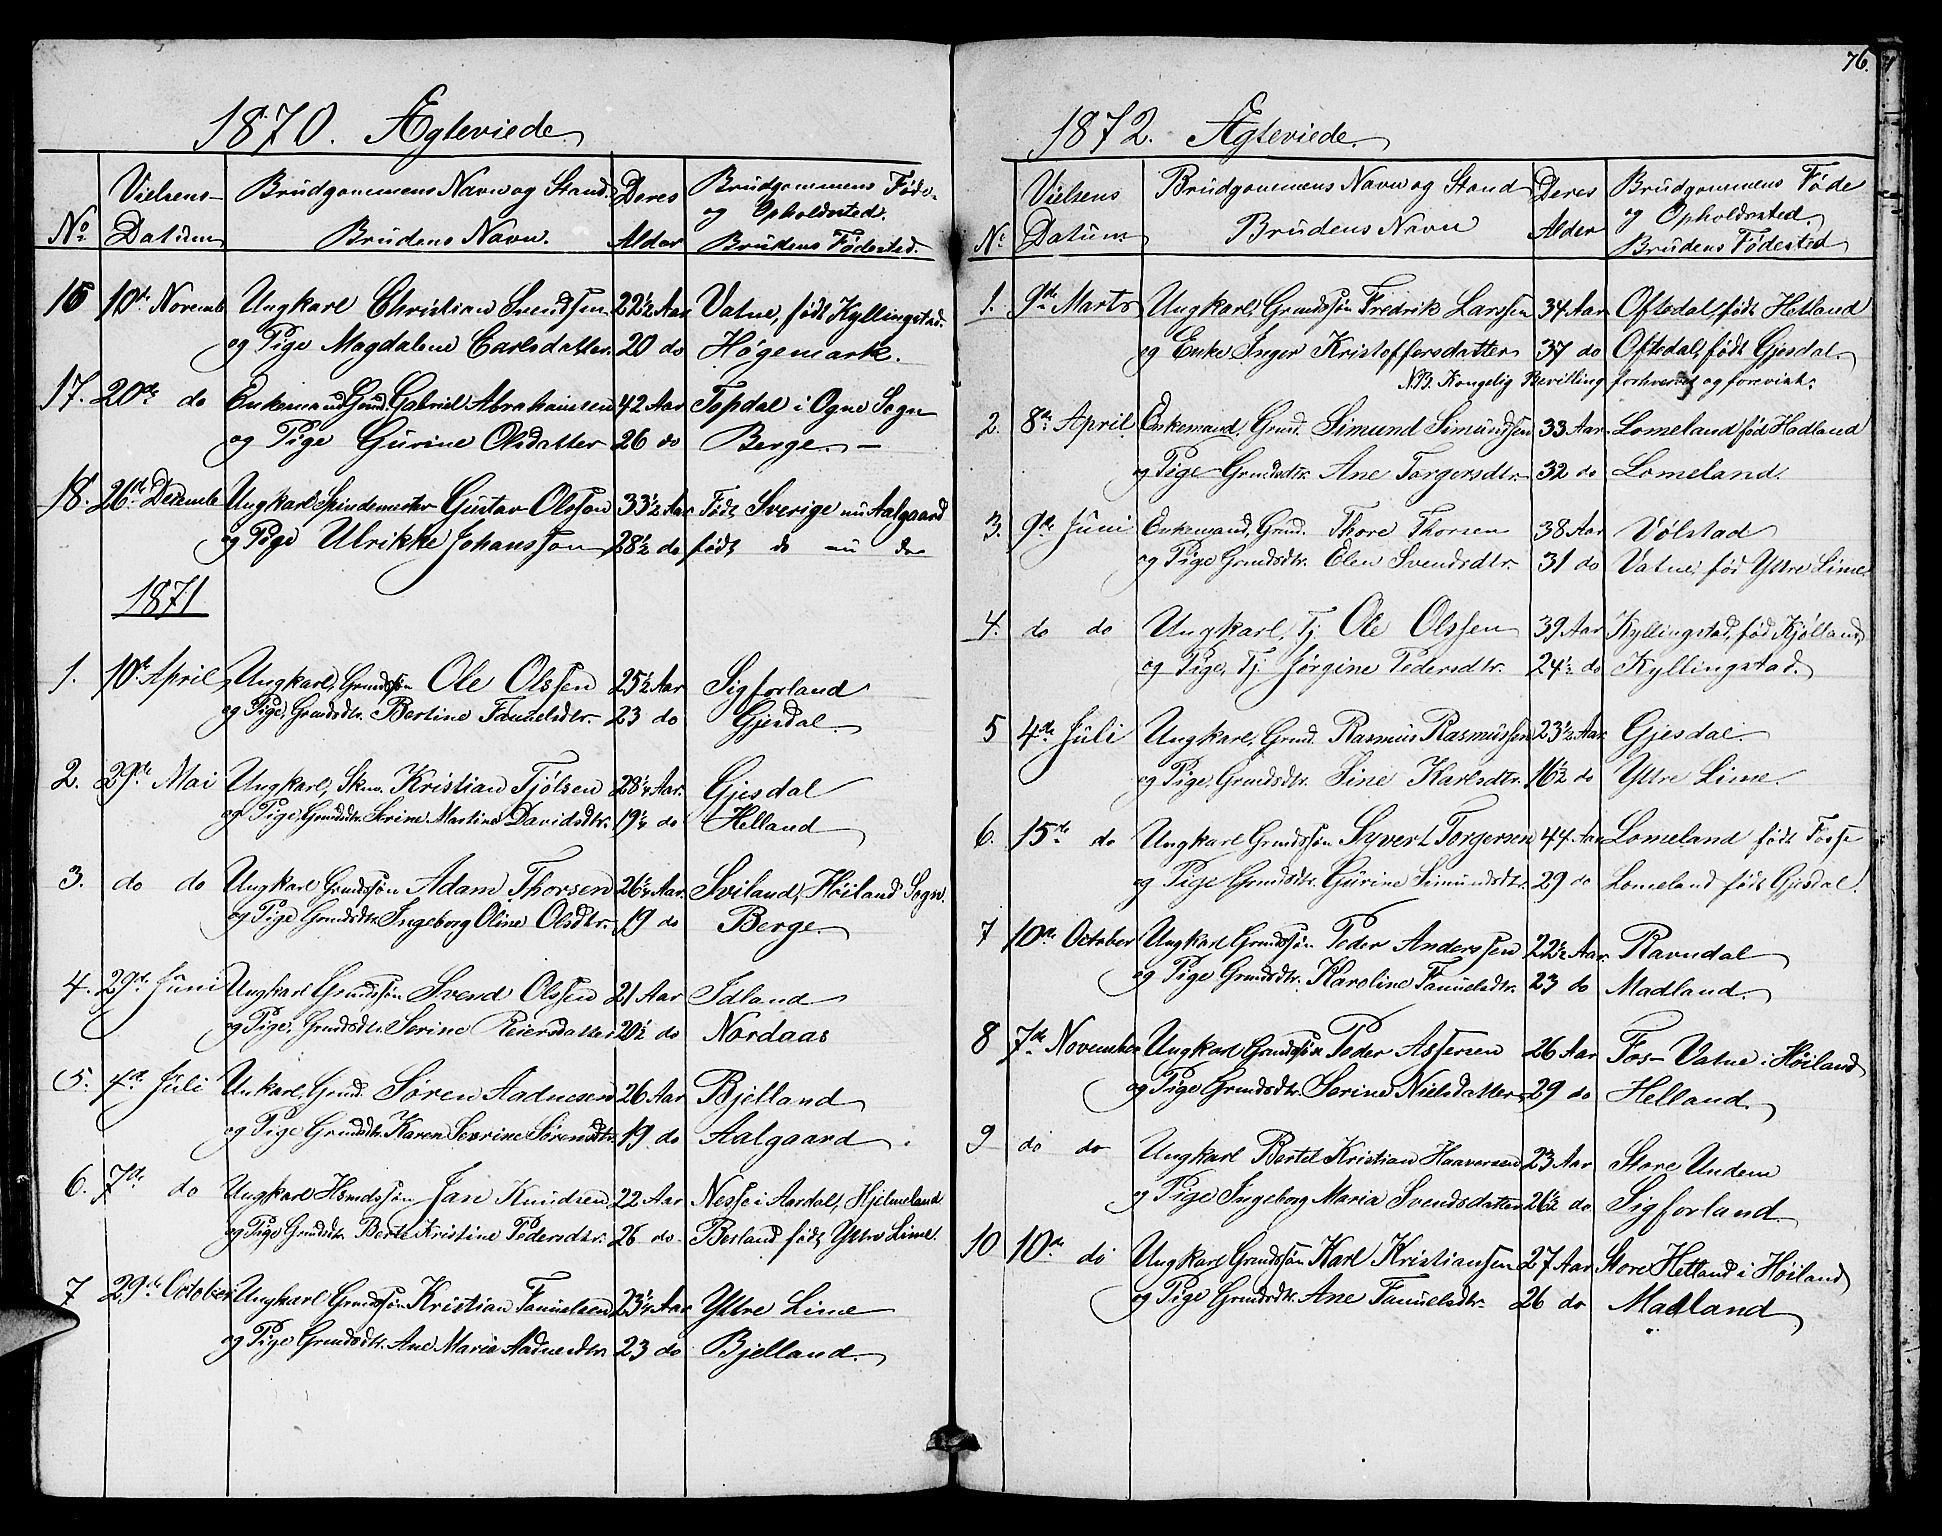 1870. Ægteviede
No. Vielsens Datum Brudgommens Navn og Stand. Brudens Navn. Deres Alder Brudgommens Føde- og Opholdssted. Brudens Fødested.
16 10de Novemb Ungkarl Christian Svendsen 22½ Aar Vatne, født Kyllingstad.
og Pige Magdalene Carlsdatter 20 do Høgemark.
17. 20de do Enkemand Gmd. Gabriel Abrahamsen 42 Aar Topdal i Ogne Sogn
og Pige Gurine Olsdatter 26 do Berge. —
18. 26de Decemb Ungkarl Spindemester Gustav Olsson 33½ Aar Født Sverige nu Aalgaard
og Pige Ulrikke Johansson 28½ do født do nu do
1871
1. 10de April Ungkarl, Grmdssøn Ole Olssen 25½ Aar Sigforland
og Pige, Grmdsdtr. Bertine Tanuelsdtr. 23 do Gjesdal.
2. 29de Mai Ungkarl, Skm. Kristian Tjølsen 28¼ Aar. Gjesdal
og Pige, Grmdsdtr. Serine Martine Davidsdtr. 19¼ do Helland
3. do do Ungkarl Grmdssøn Adam Thorsen 26¼ Aar. Sviland, Høiland Sogn.
og Pige Grmdsdtr. Ingeborg Oline Olsdtr. 19 do Berge.
4. 29de Juni Ungkarl Grmdssøn Svend Olssen 21 Aar Idland
og Pige, Grmdsdtr. Serine Peiersdatter 20½ do Nordaas
5. 4de Juli Unkarl, Grmd. Søren Aadnesen 26 Aar Bjelland
og Pige Grmdsdtr. Karen Severine Sørensdtr. 19 do Aalgaard.
6. 7de do Ungkarl Hsmdssøn Jan Knudsen 22 Aar Nesse i Aardal, Hjelmeland
og Pige Grmdsdtr. Berte Kristine Pedersdtr. 26 do Berland født Yttre Lime.
7 29de October Ungkarl Grmdssøn Kristian Tanuelsen 23¼ Aar Yttre Lime
og Pige Grmdsdtr. Ane Marie Aadnesdtr. 23 do Bjelland.
76.
1872. Ægteviede.
No. Vielsens Datum. Brudgommens Navn og Stand Brudens Navn Deres Alder Brudgommens Føde og Opholdssted Brudens Fødested
1. 9de Marts Ungkarl, Grmdssøn Fredrik Larssen 34 Aar Oftedal, født Hetland
og Enke Inger Kristoffersdatter 37 do Oftedal, født Gjesdal.
NB. Kongelig Bevilling forhvervet og forevist.
2. 8de April Enkemand, Grmd. Simund Simundsen 33 Aar Lomeland, fød Hadland
og Pige Grmdsdtr. Ane Torgersdtr. 32 do Lomeland.
3. 9de Juni Enkemand, Grmd. Thore Thorsen 38 Aar Vølstad
og Pige Grmdsdtr. Elen Svendsdtr. 31 do Vatne, fød Yttre Lime.
4. do do Ungkarl, Tj. Ole Olssen 39 Aar Kyllingstad, fød Kjølland,
og Pige, Tj. Jørgine Pedersdtr. 24½ do Kyllingstad.
5 4de Juli Ungkarl, Grmd. Rasmus Rasmussen 23½ Aar Gjesdal.
og Pige, Grmdsdtr. Sine Karlsdtr. 16½ do Yttre Lime.
6. 15de do Ungkarl Grmdssøn Syvert Torgersen 44 Aar Lomeland født Fosse
og Pige Grmdsdtr. Gurine Simundsdtr. 29 do Lomeland født Gjesdal.
7 10de October Ungkarl Grmdssøn Peder Anderssen 22½ Aar. Ravndal
og Pige Grmdsdtr. Karoline Tanuelsdtr. 23 do Madland.
8 7de November Ungkarl Grmdssøn Peder Assersen 26 Aar Fos-Vatne i Høiland
og Pige Grmdsdtr. Serine Nielsdatter 29 do Helland.
9 do do Ungkarl Bertel Kristian Haaversen 23 Aar Store Undem
og Pige Ingeborg Maria Svendsdatter 26½ do Sigforland
10 10de do Ungkarl Grmdssøn Karl Kristiansen 27 Aar Store Hetland i Høiland
og Pige Grmdsdtr. Ane Tanuelsdtr. 26 do Madland